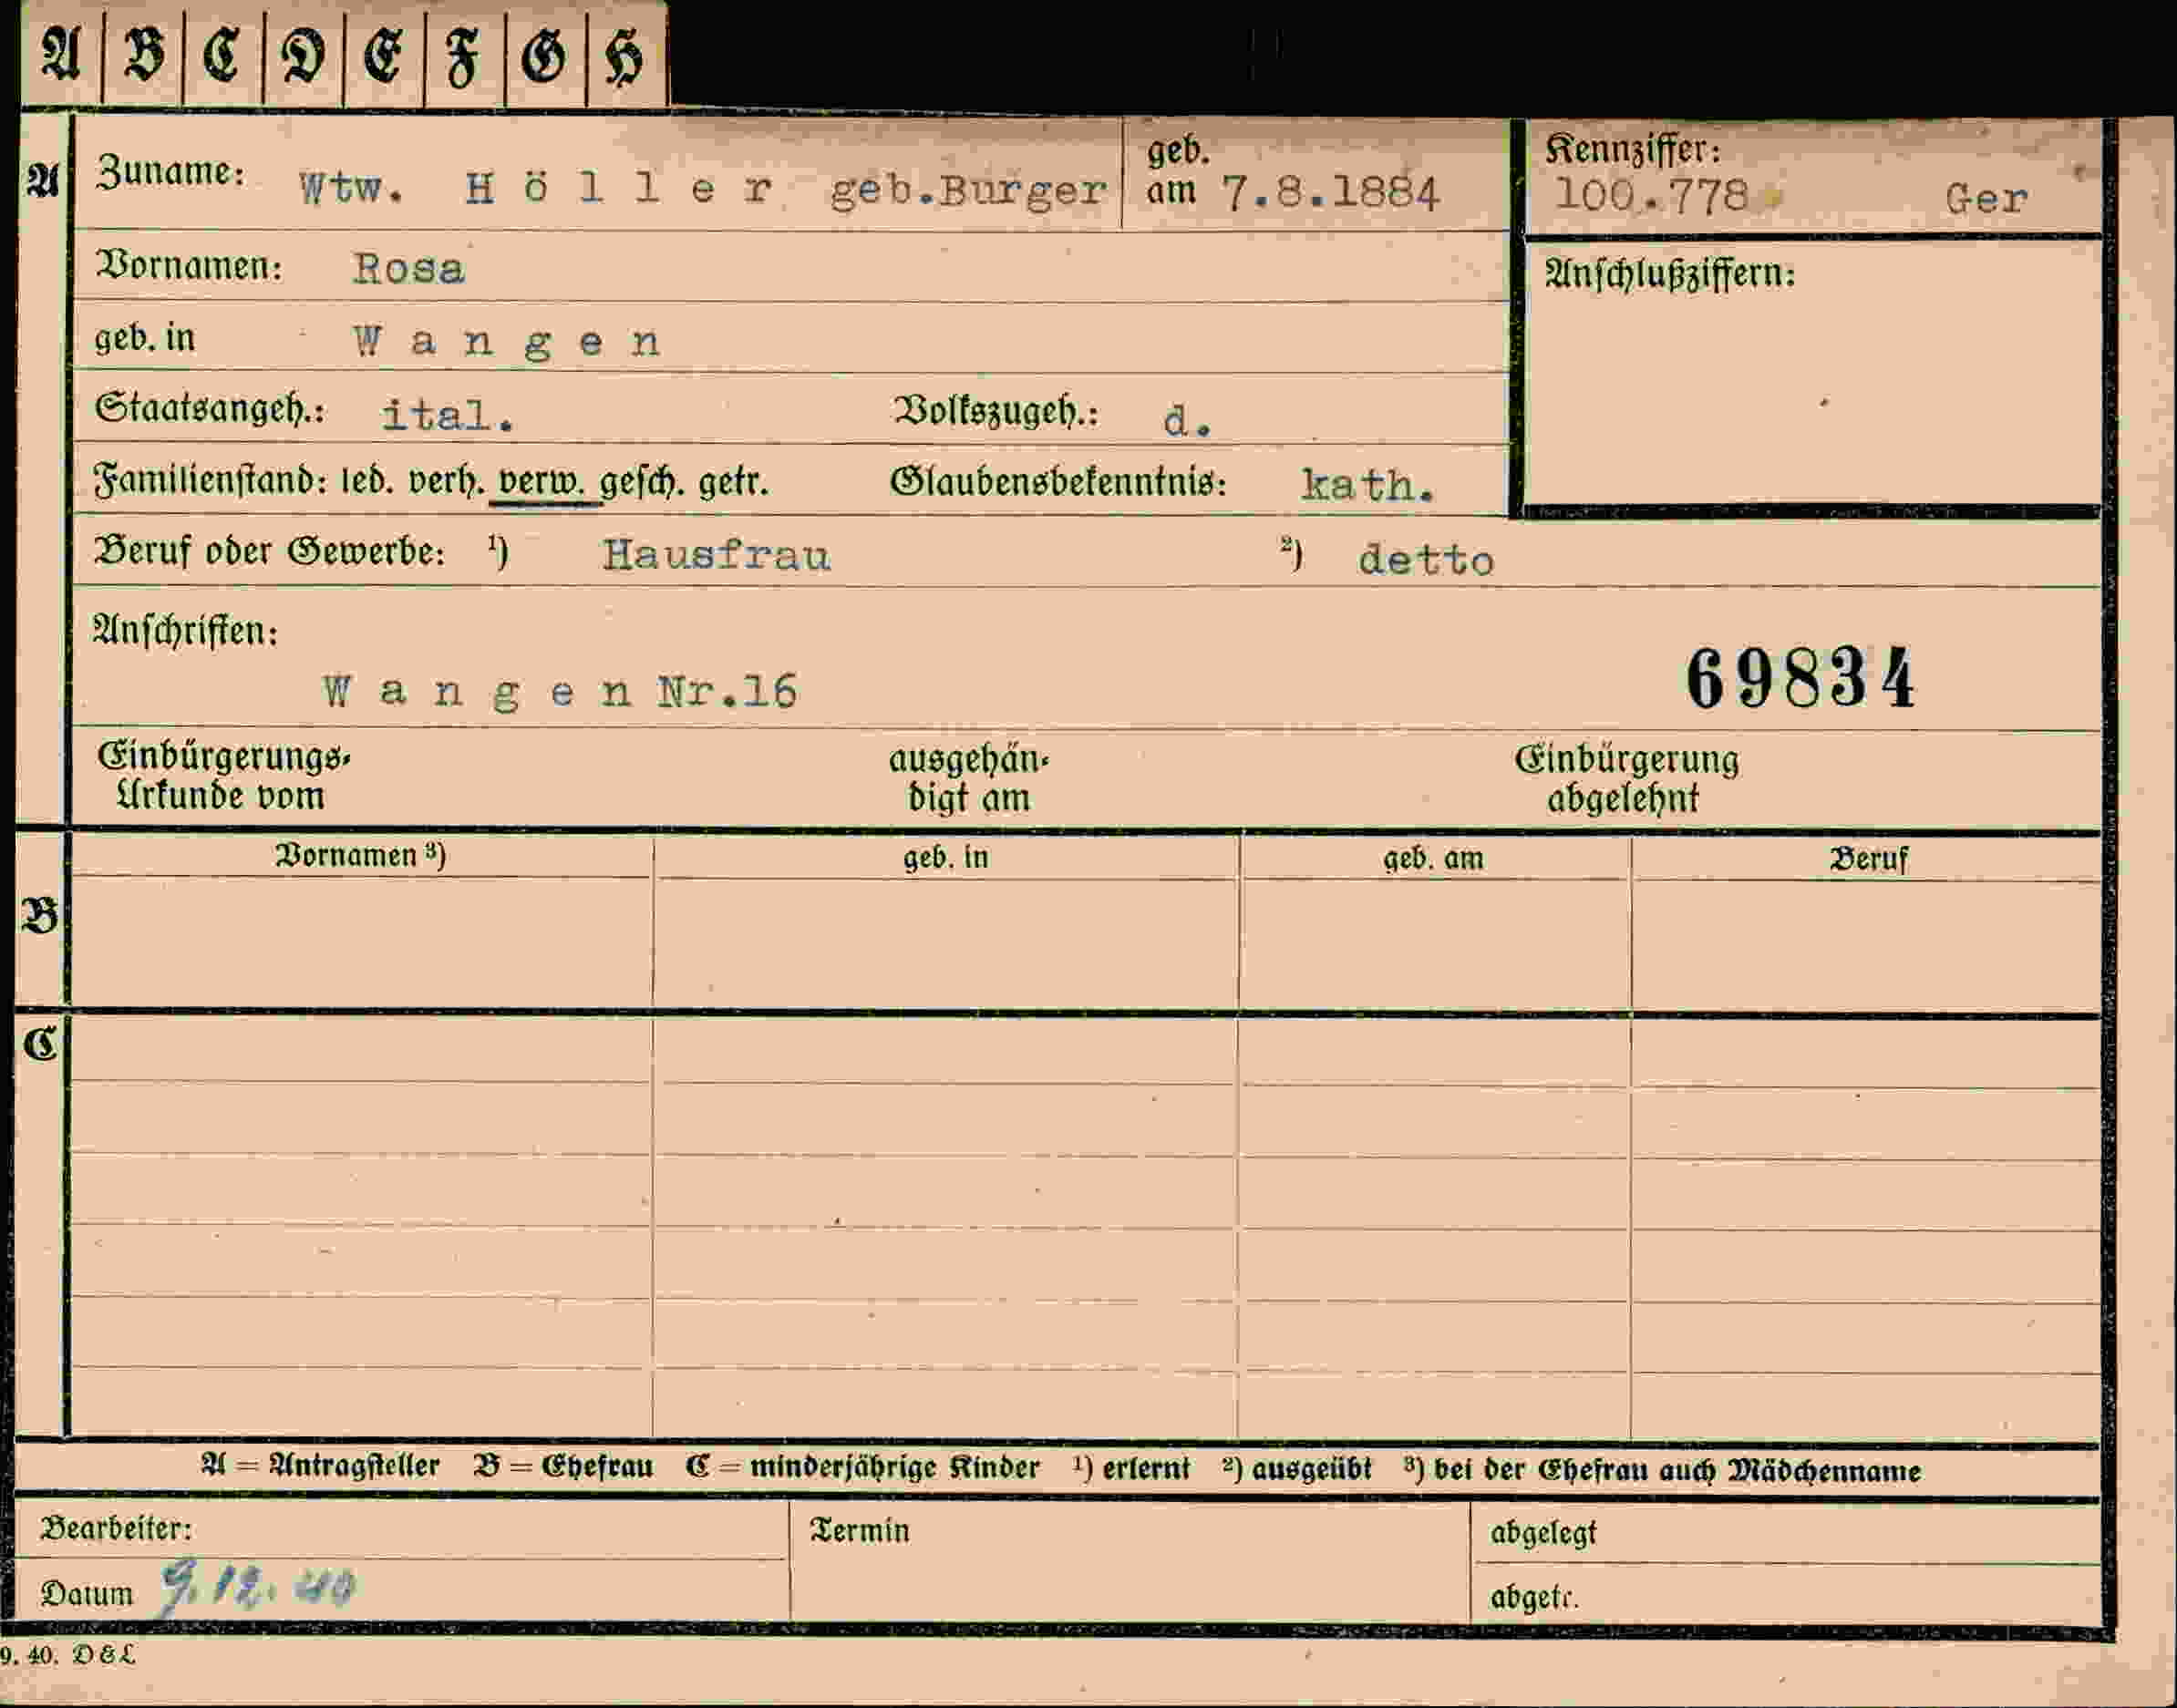 A B C D E F G H
A
Zuname: Wtw. H ö l l e r geb.Burger
geb. am 7.8.1884
Kennziffer:
100.778 Ger
Vornamen: Rosa
Anschlußziffern:
geb. in W a n g e n
Staatsangeh.: ital. Volkszugeh.: d.
Familienstand: led. verh. verw. gesch. getr. Glaubensbekenntnis: kath.
Beruf oder Gewerbe: ¹) Hausfrau ²) detto
Anschriften:
W a n g e n Nr.16
69834
Einbürgerungs-
Urkunde vom
ausgehän-
digt am
Einbürgerung
abgelehnt
Vornamen ³) geb. in geb. am Beruf
B
C
A = Antragsteller B = Ehefrau C = minderjährige Kinder ¹) erlernt ²) ausgeübt ³) bei der Ehefrau auch Mädchenname
Bearbeiter: Termin abgelegt
Datum 9.12.40 abgetr.
9. 40. D & L